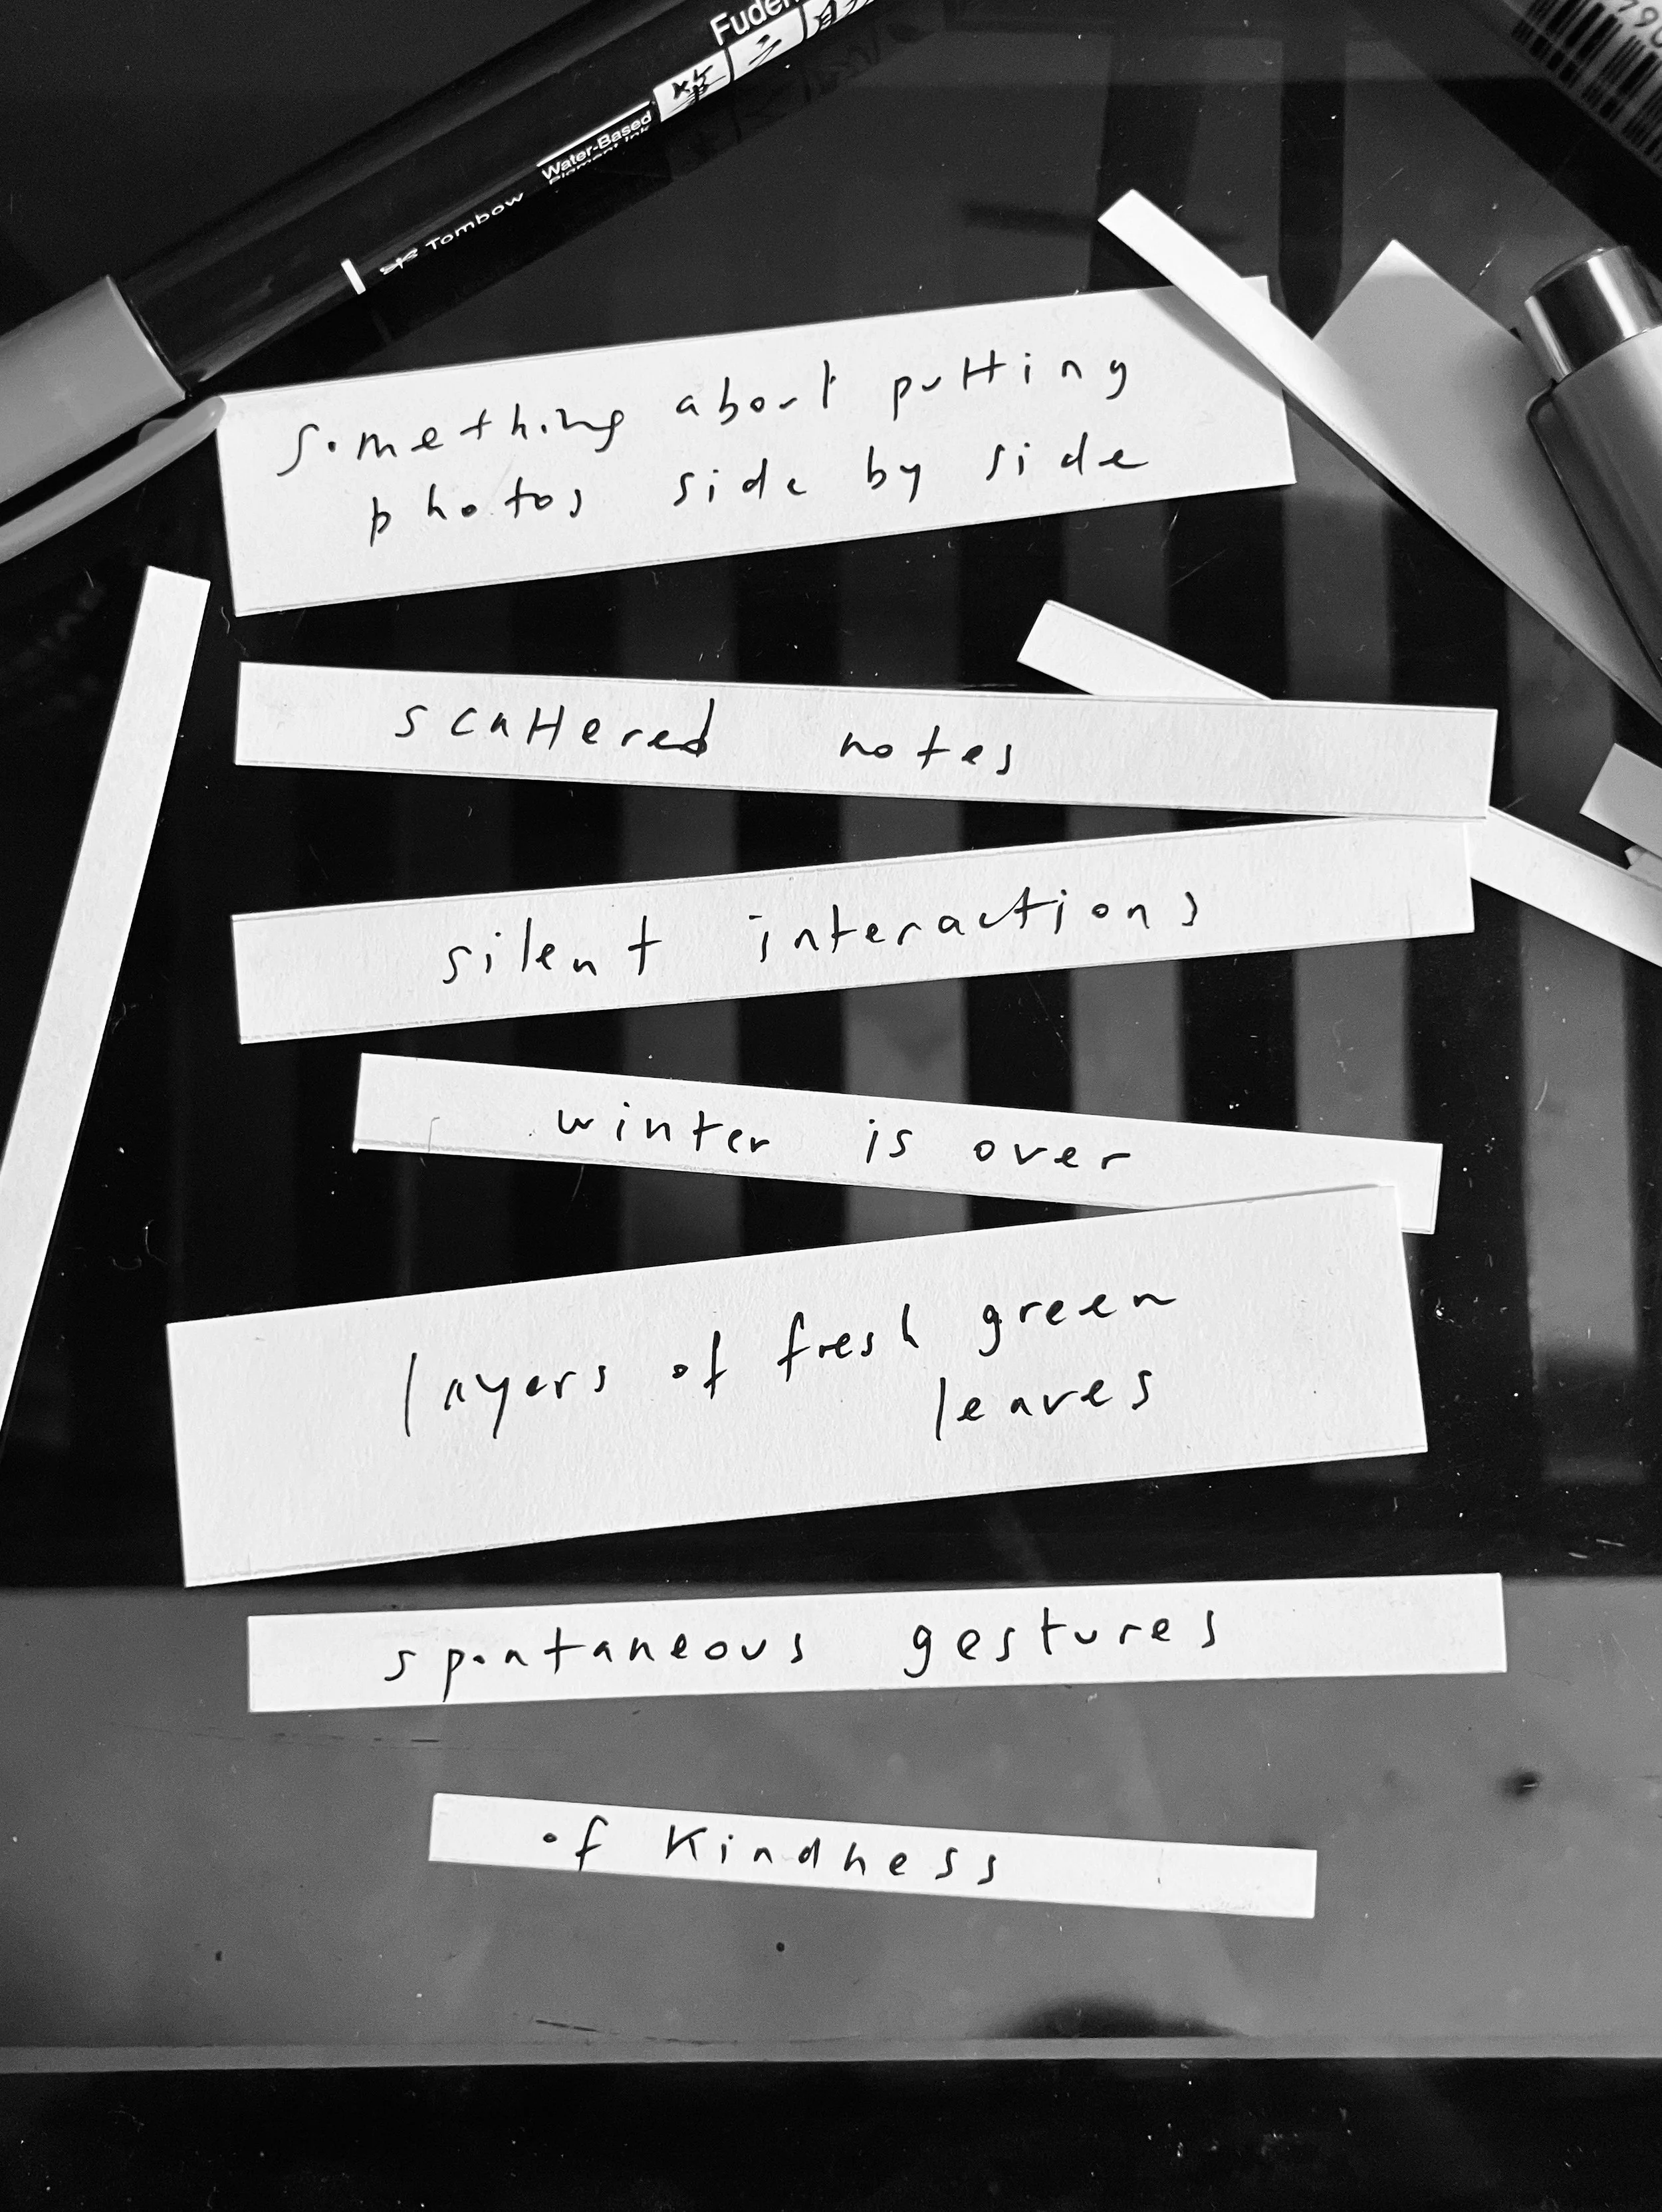 Tombow
Water-Based
Pigment Ink
something about putting
photos side by side
scattered notes
silent interactions
winter is over
layers of fresh green
leaves
spontaneous gestures
of Kindness